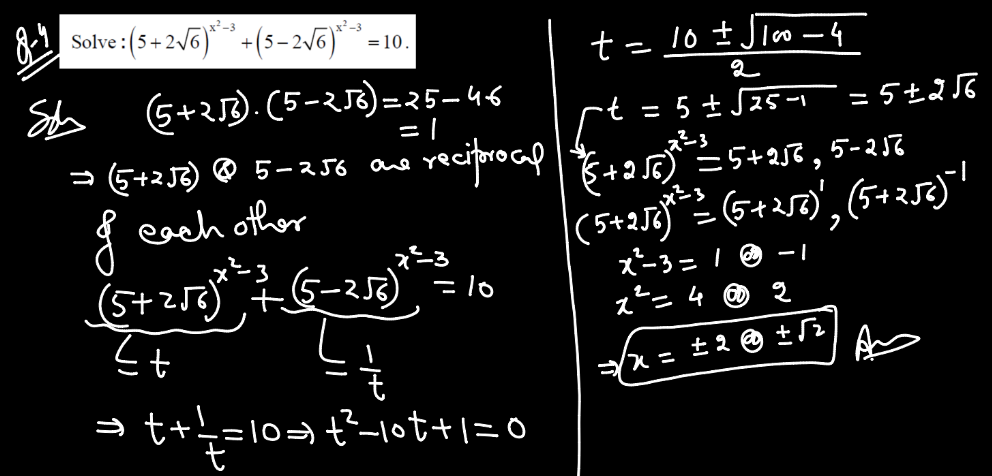 Q-4 Solve : (5+2√6)^(x²−3) + (5−2√6)^(x²−3) = 10.
Soln (5+2√6).(5−2√6)=25−4.6
= 1
⇒ (5+2√6) & 5−2√6 are reciprocal
of each other
(5+2√6)^(x²−3) + (5−2√6)^(x²−3) = 10
= t = 1/t
⇒ t + 1/t = 10 ⇒ t²−10t+1=0
t = (10 ± √(100−4))/2
t = 5 ± √(25−1) = 5±2√6
(5+2√6)^(x²−3) = 5+2√6, 5−2√6
(5+2√6)^(x²−3) = (5+2√6)^1, (5+2√6)^−1
x²−3 = 1 or −1
x² = 4 or 2
⇒ x = ±2 or ±√2 Ans